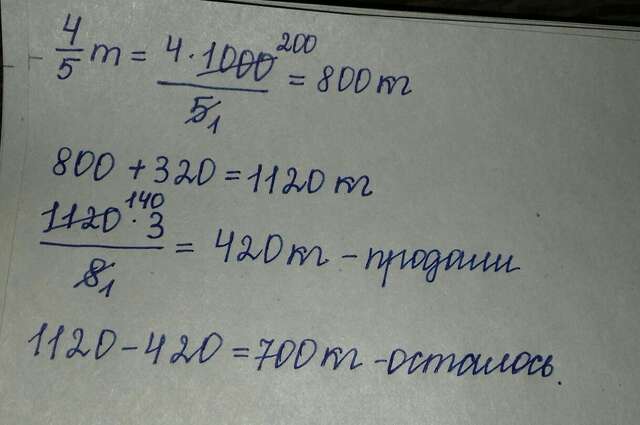 4/5 т = 4 · 1000 200 / 5 1 = 800 кг
800 + 320 = 1120 кг
1120 140 · 3 / 8 1 = 420 кг - продали
1120 - 420 = 700 кг - осталось.